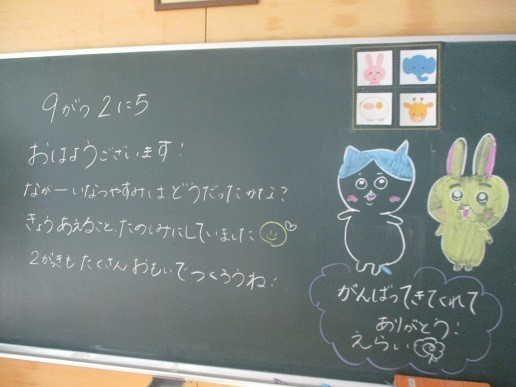 9がつ2にち
おはようございます!
ながーいなつやすみはどうだったかな?
きょうあえること、たのしみにしていました
2がっきも たくさん おもいで つくろうね!
がんばってきてくれて
ありがとう!
えらい